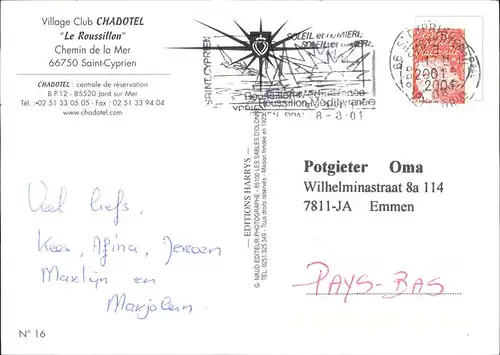 Village Club CHADOTEL
"Le Roussillon"
Chemin de la Mer
66750 Saint-Cyprien
CHADOTEL : centrale de réservation
B.P.12 - 85520 Jard sur Mer
Tél. : 02 51 33 05 05 - Fax 02 51 33 94 04
www.chadotel.com
Veel liefs,
Kees, Afina, Jeroen
Martijn en
Marjolein
N° 16
SAINT CYPRIEN
SOLEIL et LUMIERE
SOLEIL et LUMIERE
Roussillon-Méditerranée
Roussillon-Méditerranée
8-8-01
66 ST CYPRIEN
2001
EDITIONS HARRYS
G. NAUD EDITEUR PHOTOGRAPHE - 85100 LES SABLES D'OLONNE
Tél. 0251 325 349 - Tous droits réservés - Maison fondée en 1926
Potgieter Oma
Wilhelminastraat 8a 114
7811-JA Emmen
PAYS-BAS